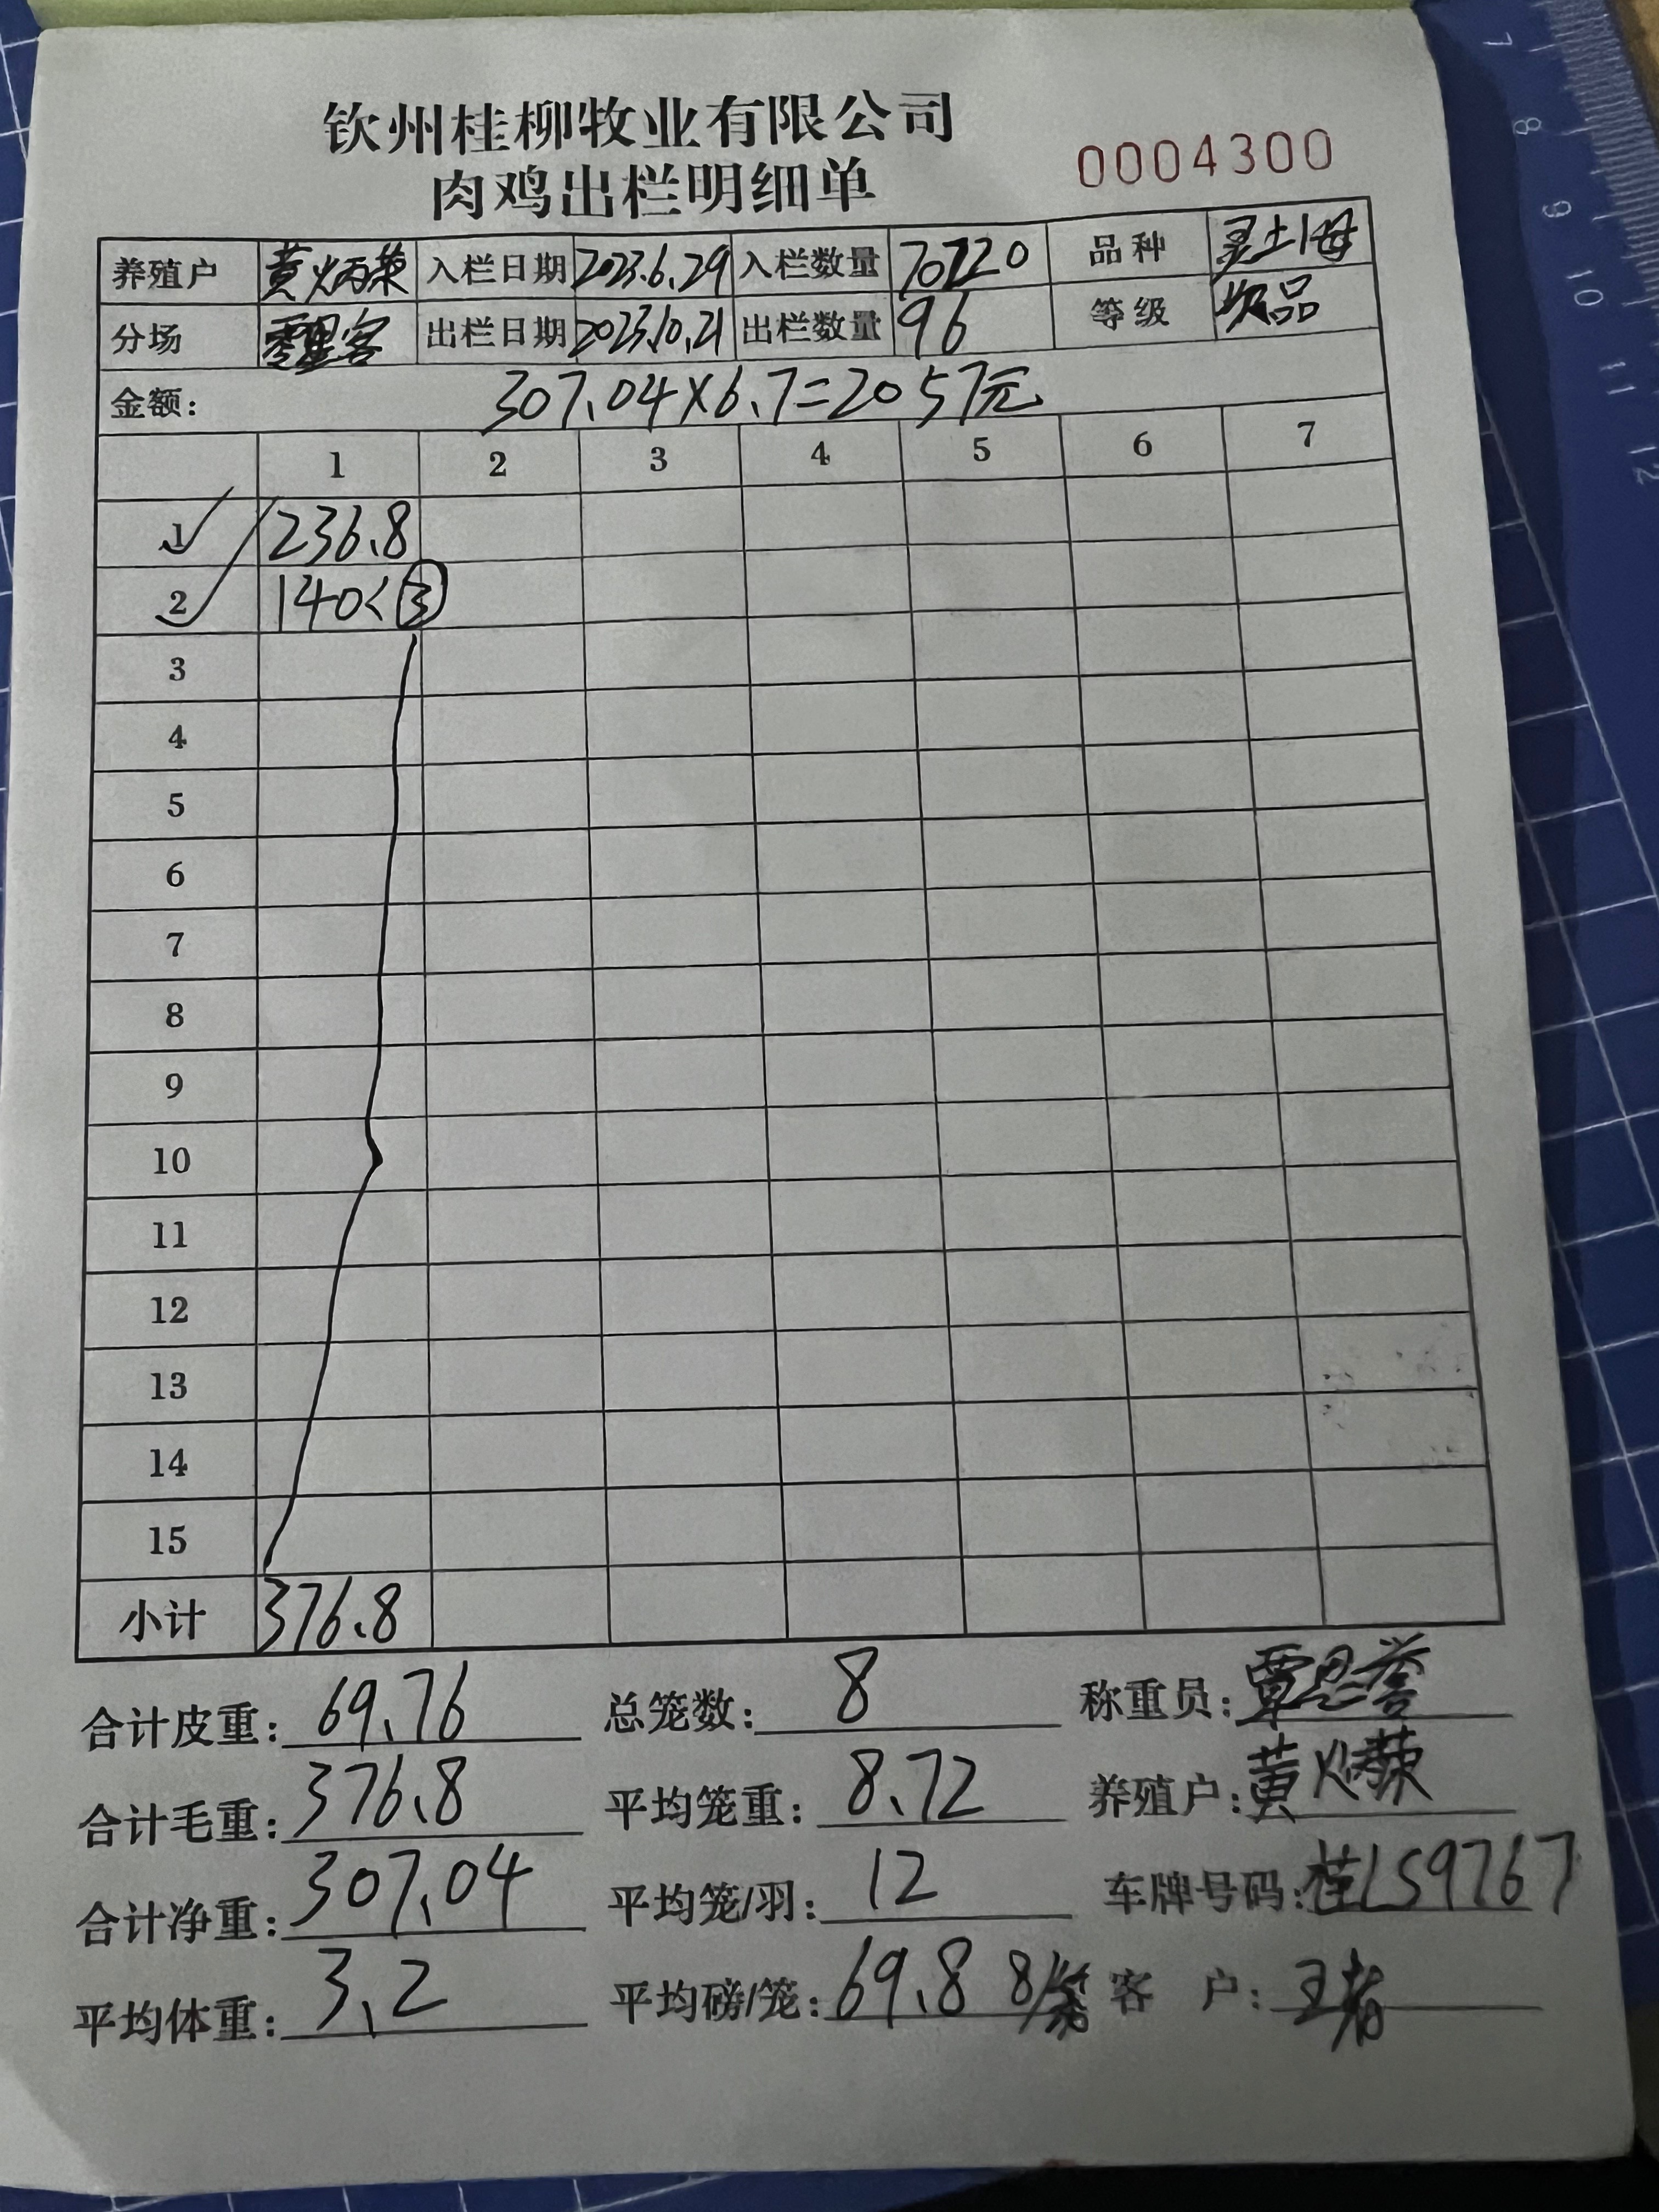 钦州桂柳牧业有限公司
肉鸡出栏明细单
0004300
养殖户 黄炳荣 入栏日期 2023.6.29 入栏数量 70720 品种 灵土1母
分场 零星客 出栏日期 2023.10.21 出栏数量 96 等级 次品
金额: 307.04×6.7=2057元
1 2 3 4 5 6 7
1 236.8
2 140<3
3
4
5
6
7
8
9
10
11
12
13
14
15
小计 376.8
合计皮重: 69.76 总笼数: 8 称重员: 覃恩誉
合计毛重: 376.8 平均笼重: 8.72 养殖户: 黄炳荣
合计净重: 307.04 平均笼/羽: 12 车牌号码: 桂LS9767
平均体重: 3.2 平均磅/笼: 69.8 8/笼 客 户:
7
8
9
10
11
12